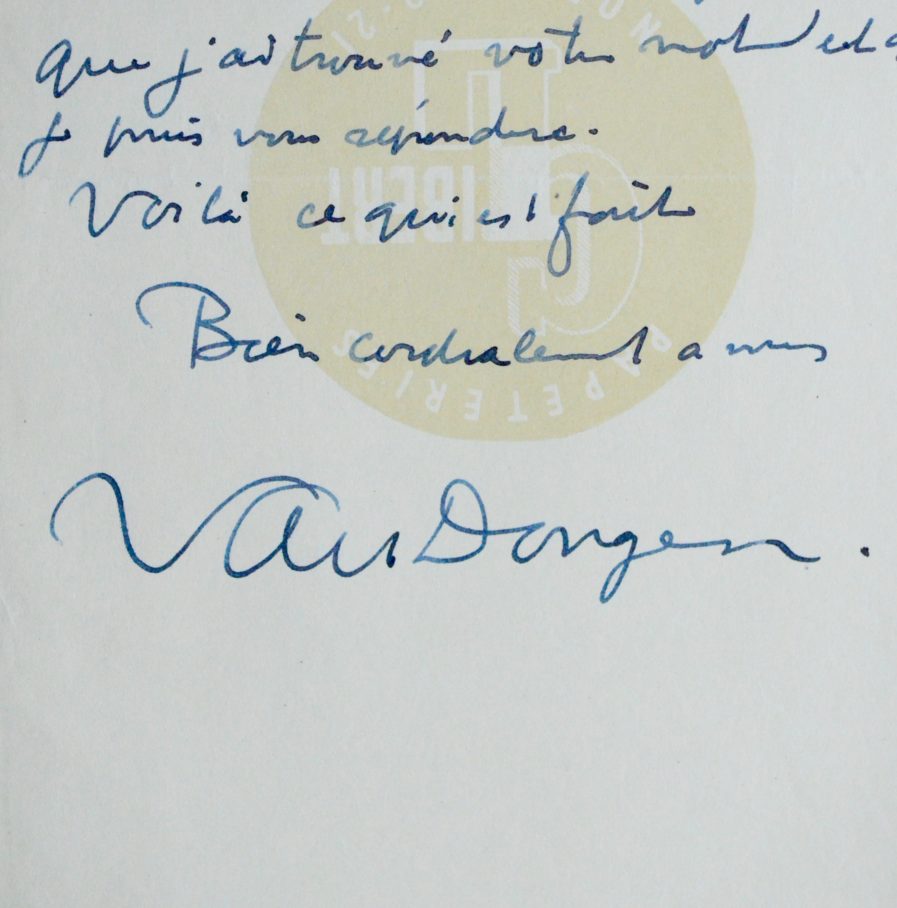 que j'ai trouvé votre mot et q
je puis vous répondre.
Voilà ce qui est fait
Bien cordialement a vous
Van Dongen.
IBERT
PAPETERIES